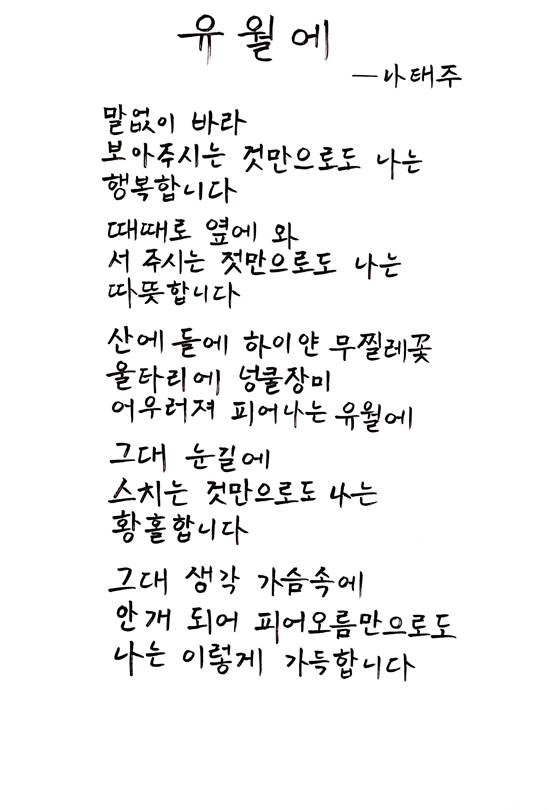 유월에
—나태주
말없이 바라
보아주시는 것만으로도 나는
행복합니다
때때로 옆에 와
서 주시는 것만으로도 나는
따뜻합니다
산에 들에 하이얀 무찔레꽃
울타리에 넝쿨장미
어우러져 피어나는 유월에
그대 눈길에
스치는 것만으로도 나는
황홀합니다
그대 생각 가슴속에
안개 되어 피어오름만으로도
나는 이렇게 가득합니다